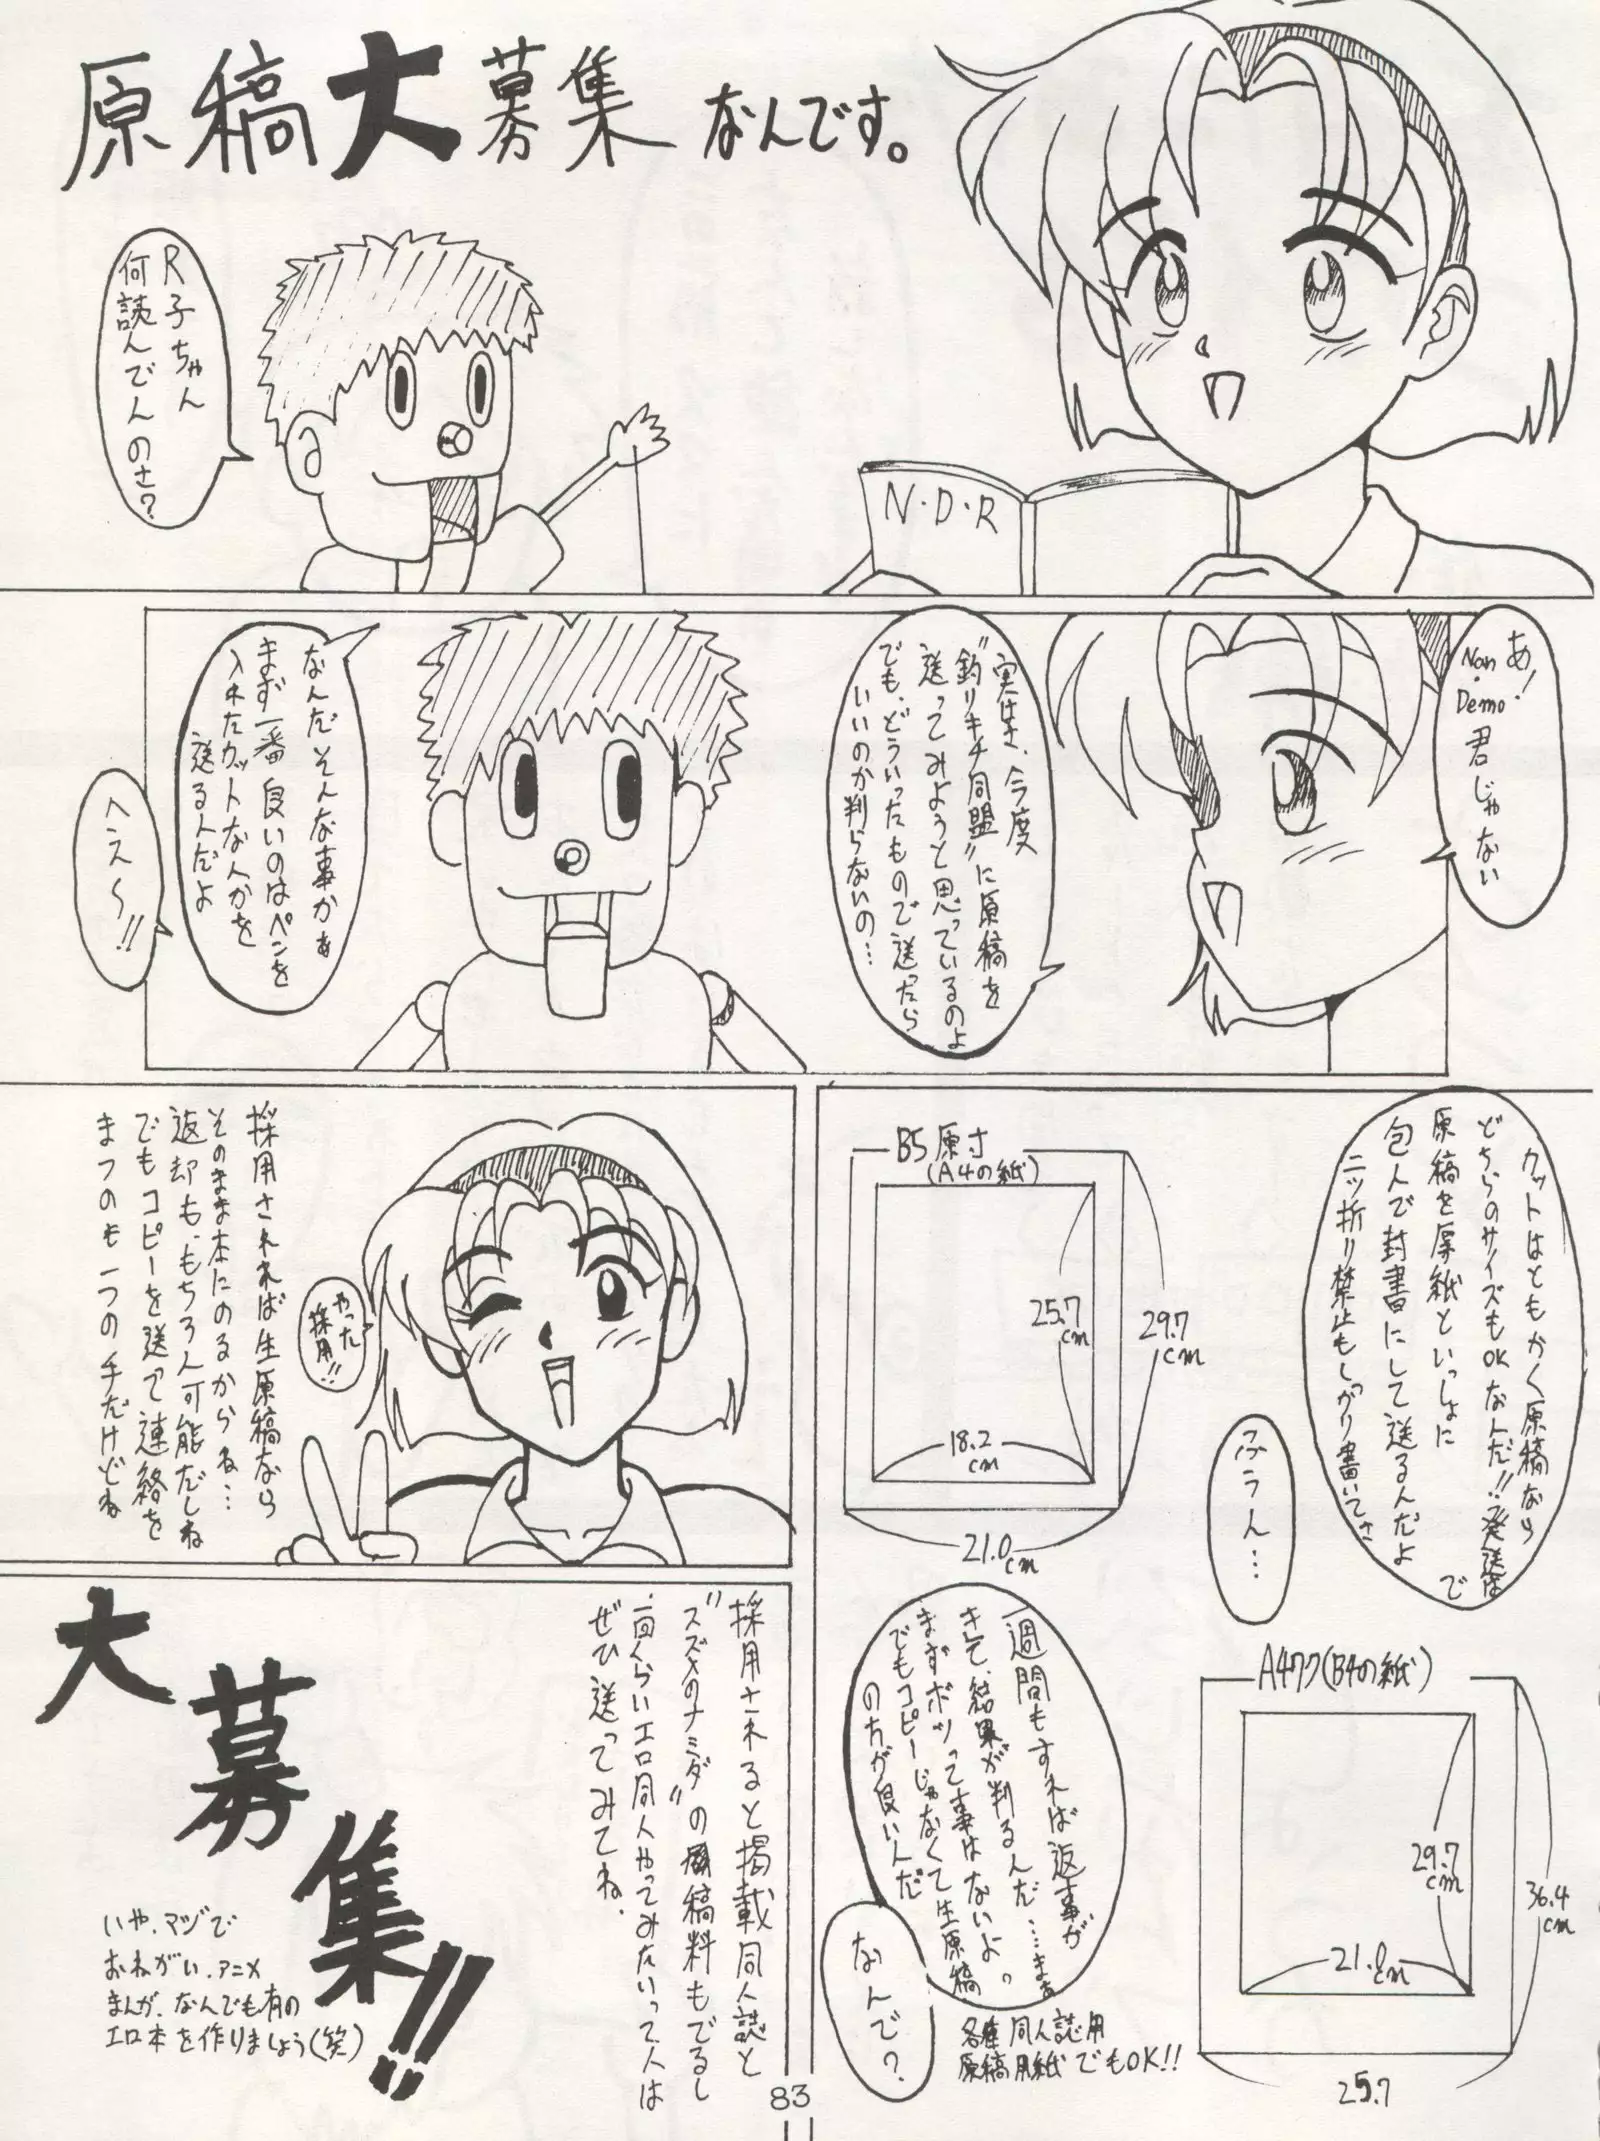 原稿大募集なんです。
R子ちゃん
何読んでんのさ?
N・D・R
あ!
Nan・Demo
君じゃない
実はさ、今度
"釣りキチ同盟"に原稿を
送ってみようと思っているのよ
でも、どういったもので送ったら
いいのか判らないの…
なんだそんな事かぁ
まず一番良いのはペンを
入れたカットなんかを
送る人だよ
ヘえ〜!!
カットはともかく原稿なら
どちらのサイズもOKなんだ!!発送は
原稿を厚紙といっしょに
包んで封書にして送るんだよ
二ッ折り禁止もしっかり書いてさ
B5原寸
(A4の紙)
25.7cm
29.7cm
18.2cm
21.0cm
ふうん…
A4ワク(B4の紙)
29.7cm
36.4cm
21.0cm
25.7
一週間もすれば返事が
きて、結果が判るんだ……まぁ
まずボツって事はないよ。
でもコピーじゃなくて生原稿
の方が良いんだ
なんで?
各種同人誌用
原稿用紙でもOK!!
やった
採用!!
採用されれば生原稿なら
そのまま本にのるからね…
返却も、もちろん可能だしね
でもコピーを送って連絡を
まつのも一つの手だけどね
採用されると掲載同人誌と
"スズメのナミダ"の原稿料もでるし
一回くらいエロ同人やってみたいって人は
ぜひ送ってみてね。
大募集!!
いや、マジで
おねがい、アニメ
まんが、なんでも有の
エロ本を作りましょう(笑)
83